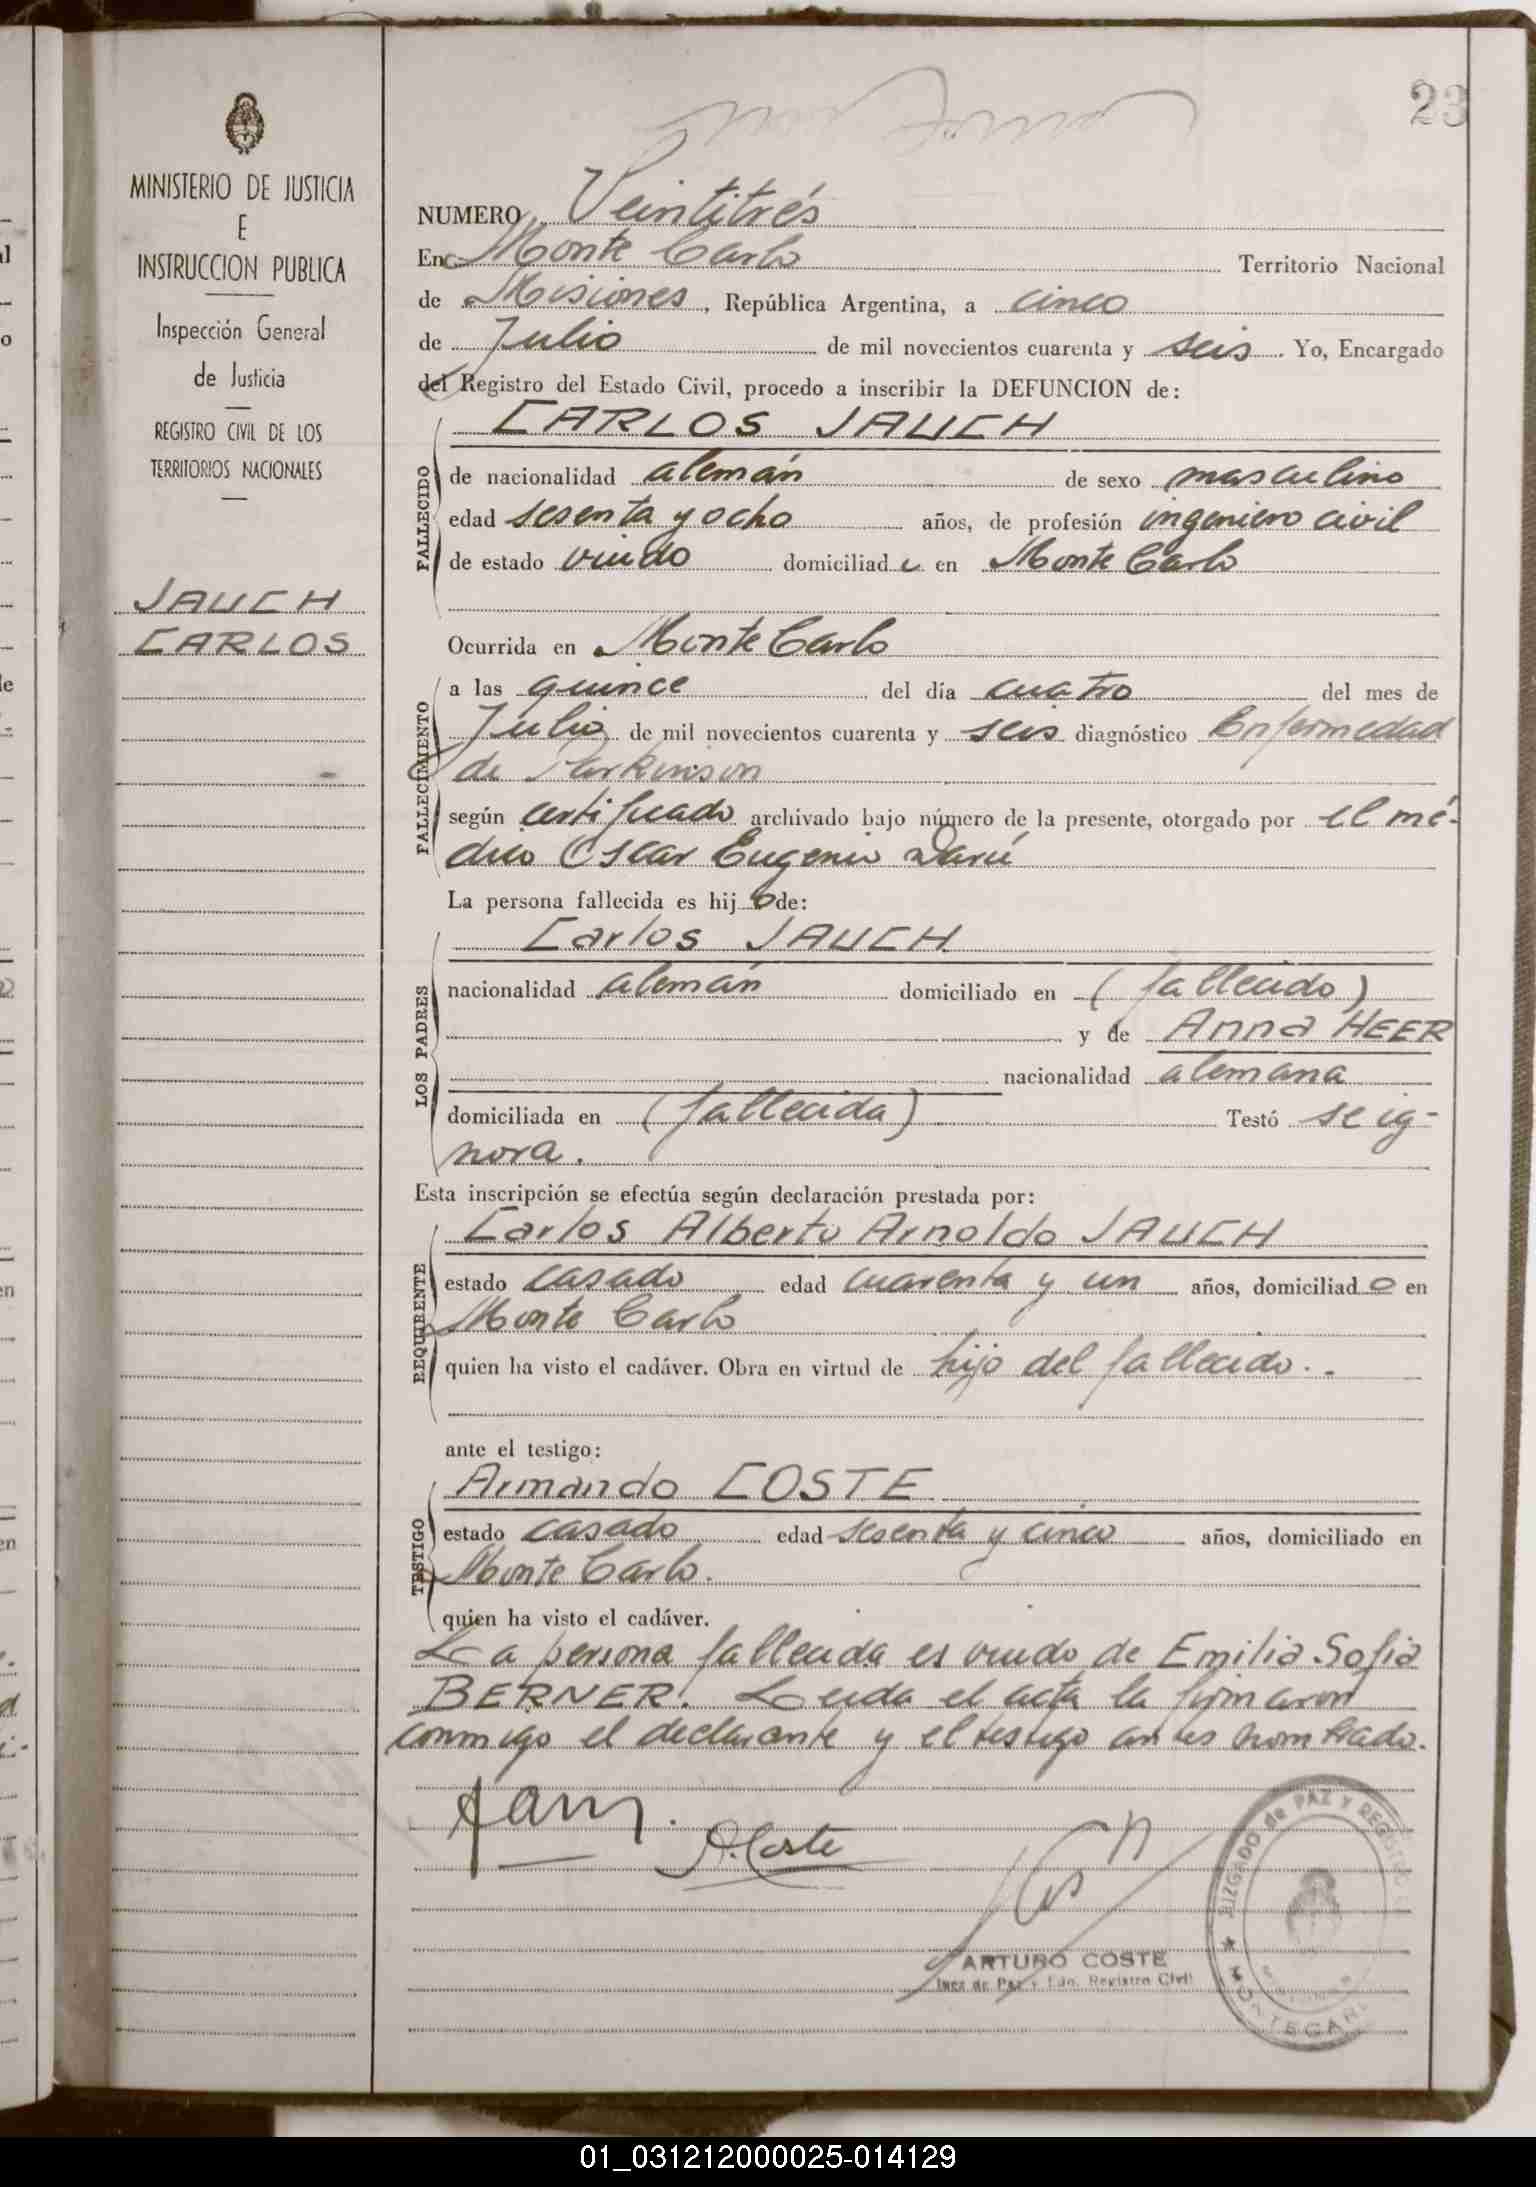 23
MINISTERIO DE JUSTICIA
E
INSTRUCCION PUBLICA
Inspección General
de Justicia
REGISTRO CIVIL DE LOS
TERRITORIOS NACIONALES
JAUCH
CARLOS
NUMERO Veintitrés
En Monte Carlo Territorio Nacional
de Misiones, República Argentina, a cinco
de Julio de mil novecientos cuarenta y seis. Yo, Encargado
del Registro del Estado Civil, procedo a inscribir la DEFUNCION de:
CARLOS JAUCH
FALLECIDO
de nacionalidad alemán de sexo masculino
edad sesenta y ocho años, de profesión ingeniero civil
de estado viudo domiciliado en Monte Carlo
Ocurrida en Monte Carlo
FALLECIMIENTO
a las quince del día cuatro del mes de
Julio de mil novecientos cuarenta y seis diagnóstico Enfermedad
de Parkinson
según certificado archivado bajo número de la presente, otorgado por el mé-
dico Oscar Eugenio Darú
La persona fallecida es hijo de:
Carlos JAUCH
LOS PADRES
nacionalidad alemán domiciliado en (fallecido)
y de Anna HEER
nacionalidad alemana
domiciliada en (fallecida) Testó se ig-
nora.
Esta inscripción se efectúa según declaración prestada por:
Carlos Alberto Arnoldo JAUCH
REQUIRENTE
estado casado edad cuarenta y un años, domiciliado en
Monte Carlo
quien ha visto el cadáver. Obra en virtud de hijo del fallecido.-
ante el testigo:
Armando COSTE
TESTIGO
estado casado edad sesenta y cinco años, domiciliado en
Monte Carlo.
quien ha visto el cadáver.
La persona fallecida es viudo de Emilia Sofia
BERNER. Leida el acta la firmaron
conmigo el declarante y el testigo antes nombrado.
A. Coste
ARTURO COSTE
Juez de Paz y Edo. Registro Civil
JUZGADO de PAZ Y REGISTRO
MISIONES
MONTECARLO
01_031212000025-014129